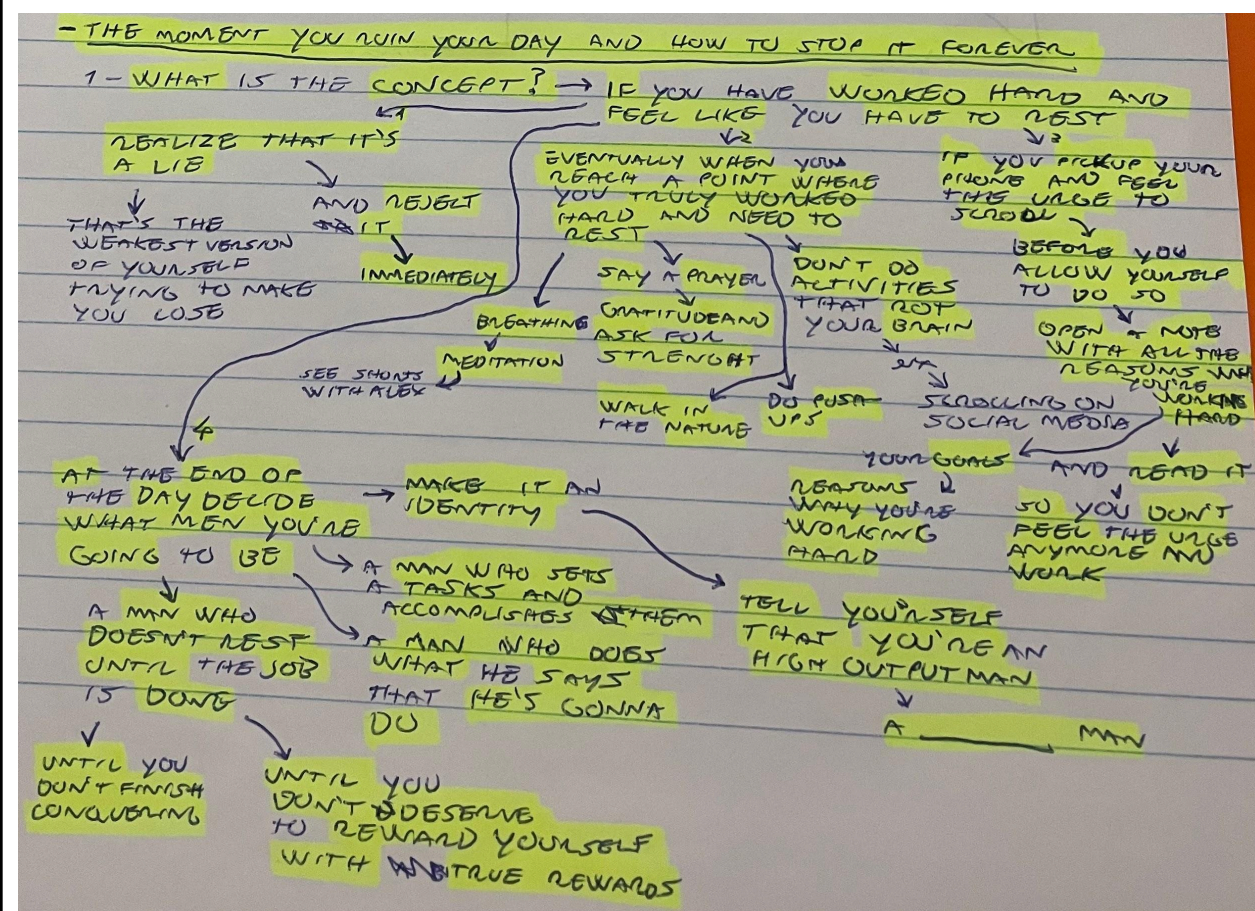 - THE MOMENT YOU RUIN YOUR DAY AND HOW TO STOP IT FOREVER
1 - WHAT IS THE CONCEPT? → IF YOU HAVE WORKED HARD AND
FEEL LIKE YOU HAVE TO REST
1
REALIZE THAT IT'S
A LIE
THAT'S THE
WEAKEST VERSION
OF YOURSELF
TRYING TO MAKE
YOU LOSE
AND REJECT
IT
IMMEDIATELY
2
EVENTUALLY WHEN YOU
REACH A POINT WHERE
YOU TRULY WORKED
HARD AND NEED TO
REST
BREATHING
MEDITATION
SEE SHORTS
WITH ALEX
SAY A PRAYER
GRATITUDE AND
ASK FOR
STRENGHT
WALK IN
THE NATURE
DO PUSH
UPS
DON'T DO
ACTIVITIES
THAT ROT
YOUR BRAIN
SCROLLING ON
SOCIAL MEDIA
3
IF YOU PICKUP YOUR
PHONE AND FEEL
THE URGE TO
SCROLL
BEFORE YOU
ALLOW YOURSELF
TO DO SO
OPEN A NOTE
WITH ALL THE
REASONS WHY
YOU'RE
WORKING
HARD
YOUR GOALS
REASONS
WHY YOU'RE
WORKING
HARD
AND READ IT
SO YOU DON'T
FEEL THE URGE
ANYMORE AND
WORK
4
AT THE END OF
THE DAY DECIDE
WHAT MEN YOU'RE
GOING TO BE
→ MAKE IT AN
IDENTITY
TELL YOURSELF
THAT YOU'RE AN
HIGH OUTPUT MAN
A ______ MAN
A MAN WHO SETS
A TASKS AND
ACCOMPLISHES THEM
A MAN WHO DOES
WHAT HE SAYS
THAT HE'S GONNA
DO
A MAN WHO
DOESN'T REST
UNTIL THE JOB
IS DONE
UNTIL YOU
DON'T FINISH
CONQUERING
UNTIL YOU
DON'T DESERVE
TO REWARD YOURSELF
WITH TRUE REWARDS